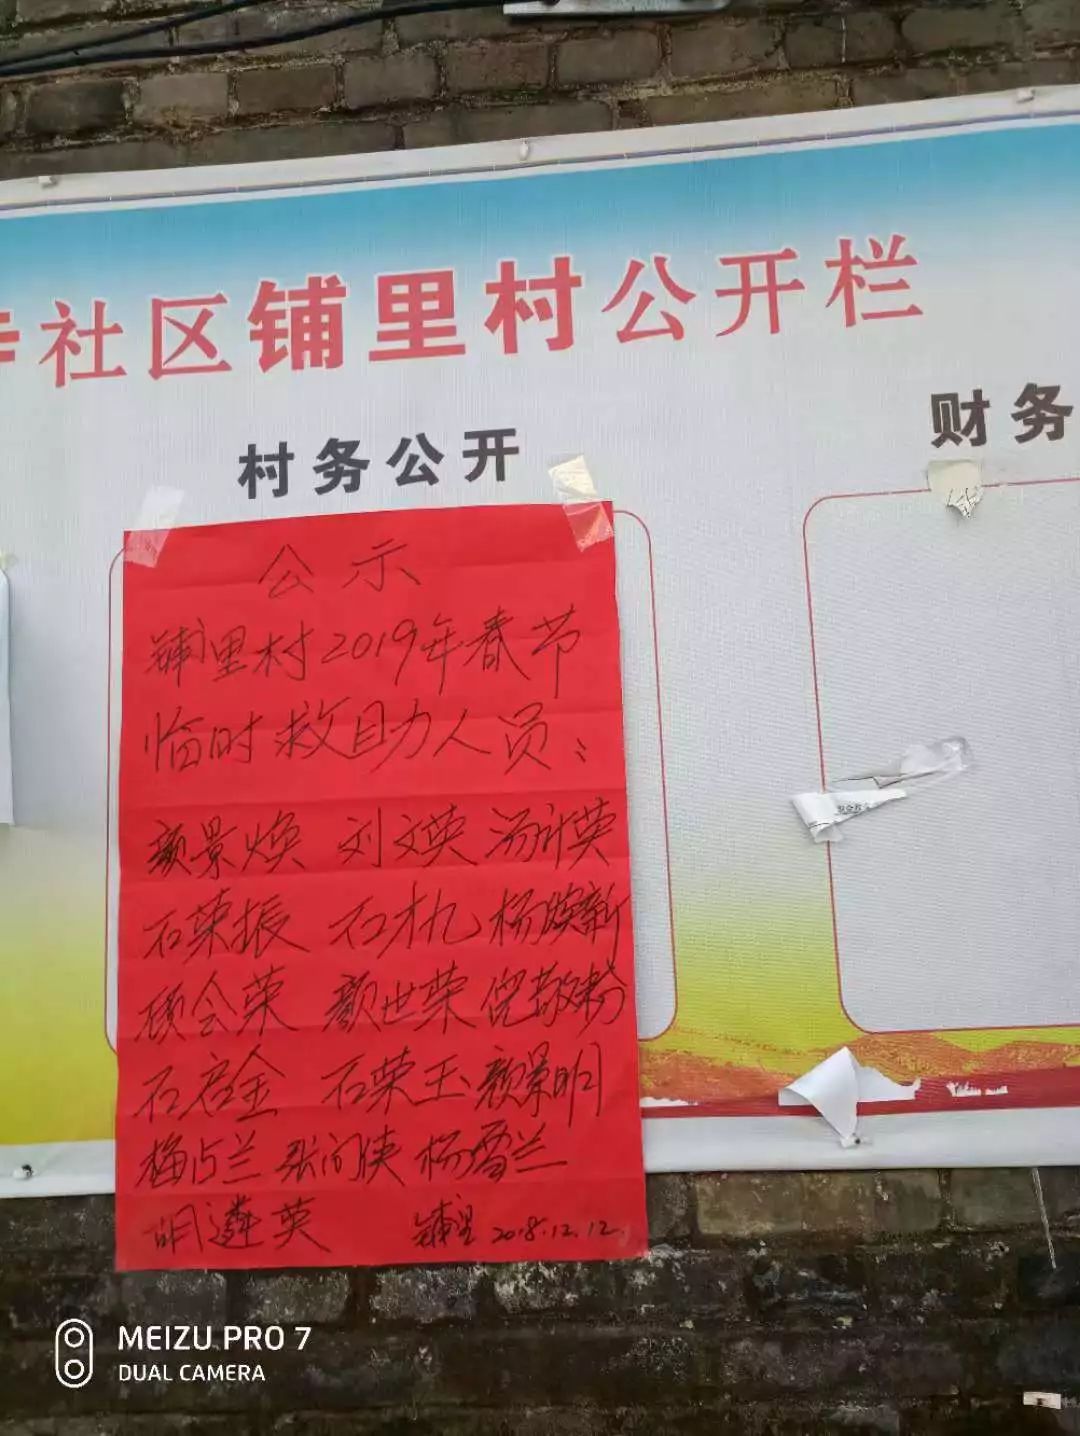 社区铺里村公开栏
村务公开
财务
公示
铺里村2019年春节
临时救助人员：
颜景焕 刘文英 汤计英
石荣振 石才礼 杨焕新
顾会荣 颜世荣 倪敬粉
石启金 石荣玉 颜景明
梅占兰 张问侠 杨雪兰
明遴英 铺里 2018.12.12
MEIZU PRO 7
DUAL CAMERA